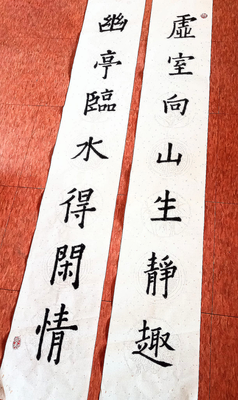 虛室向山生靜趣
幽亭臨水得閑情